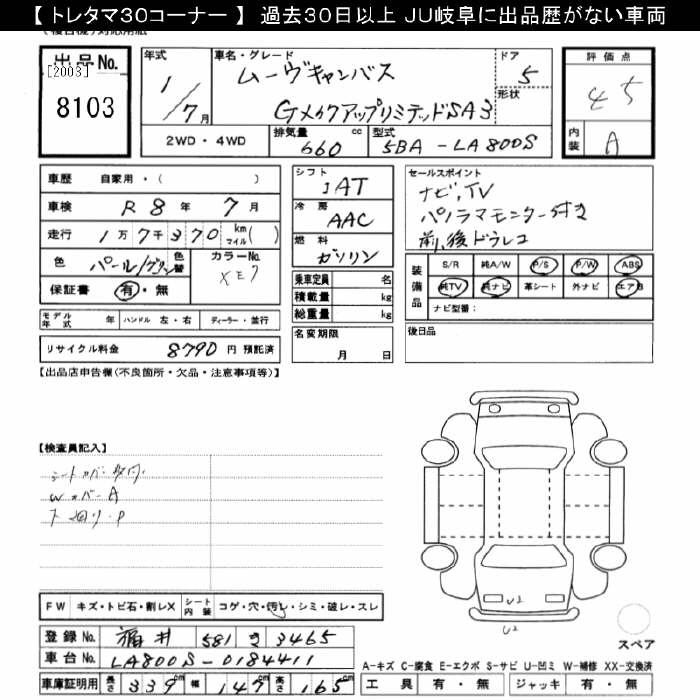 【 トレタマ30コーナー 】 過去30日以上 JU岐阜に出品歴がない車両
出品No.
[2003]
8103
年式
1/7月
車名・グレード
ムーヴキャンバス
Gメイクアップリミテッド SA3
ドア
5
形状
2WD・4WD
排気量 cc
660
型式
5BA-LA800S
評価点
4.5
内装
A
車歴 自家用・( )
車検 R 8年 7月
走行 1万7千370 km マイル( )
色 パール/グリン 色替
カラーNo. XE7
保証書 有・無
モデル年式 年 ハンドル 左・右 ディーラー・並行
リサイクル料金 8790 円 預託済
シフト
IAT
冷房
AAC
燃料
ガソリン
乗車定員 名
積載量 kg
総重量 kg
名変期限
月 日
セールスポイント
ナビ,TV
パノラマモニター付き
前,後ドラレコ
装備品
S/R 純A/W P/S P/W ABS
純TV 純ナビ 革シート 外ナビ エアB
ナビ型番:
後日品
【出品店申告欄(不良箇所・欠品・注意事項等)】
【検査員記入】
シートカバー取付
Wカバー A
下回り・P
FW キズ・トビ石・割レX シート内装 コゲ・穴・汚レ・シミ・破レ・スレ
登録No. 福井 581 き 3465
車台No. LA800S-0184411
車庫証明用 長さ 339cm 幅 147cm 高さ 165cm
U2
U2
スペア
A-キズ C-腐食 E-エクボ S-サビ U-凹ミ W-補修 XX-交換済
工具 有・無 ジャッキ 有・無